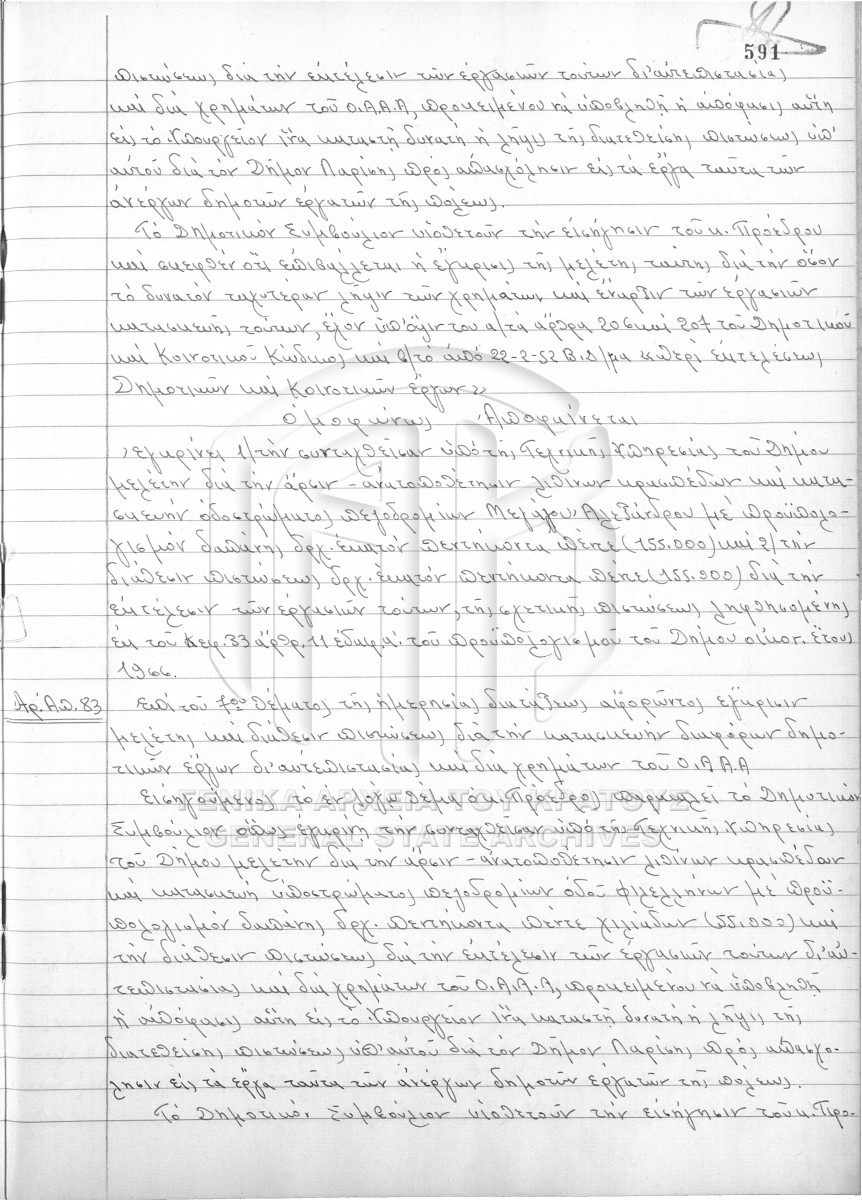 591
πιστώσεως διά τήν ἐκτέλεσιν τῶν ἐργασιῶν τούτων δι' αὐτεπιστασίας
καί διά χρημάτων τοῦ Ο.Α.Α.Α, προκειμένου νά ὑποβληθῇ ἡ ἀπόφασις αὕτη
εἰς τό Ὑπουργεῖον ἵνα καταστῇ δυνατή ἡ λῆψις τῆς διατεθείσης πιστώσεως ὑπ'
αὐτοῦ διά τόν Δῆμον Λαρίσης πρός ἀπασχόλησιν εἰς τά ἔργα ταῦτα τῶν
ἀνέργων δημοτῶν ἐργατῶν τῆς πόλεως.
Τό Δημοτικόν Συμβούλιον υἱοθετοῦν τήν εἰσήγησιν τοῦ κ. Προέδρου
καί σκεφθέν ὅτι ἐπιβάλλεται ἡ ἔγκρισις τῆς μελέτης ταύτης διά τήν ὅσον
τό δυνατόν ταχυτέραν λῆψιν τῶν χρημάτων καί ἔναρξιν τῶν ἐργασιῶν
κατασκευῆς τούτων, ἔχον ὑπ' ὄψιν του α/τά ἄρθρα 206 καί 207 τοῦ Δημοτικοῦ
καί Κοινοτικοῦ Κώδικος καί β/τό ἀπό 22-2-52 Β.Δ/μα «περί ἐκτελέσεως
Δημοτικῶν καί Κοινοτικῶν ἔργων»
Ὁμοφώνως Ἀποφαίνεται
Ἐγκρίνει 1/τήν συνταχθεῖσαν ὑπό τῆς Τεχνικῆς Ὑπηρεσίας τοῦ Δήμου
μελέτην διά τήν ἄρσιν - ἀνατοποθέτησιν λιθίνων κρασπέδων καί κατα-
σκευήν ὁδοστρώματος πεζοδρομίων Μεγάλου Ἀλεξάνδρου μέ προϋπολο-
γισμόν δαπάνης δρχ. ἑκατόν πεντήκοντα πέντε (155.000) καί 2/ τήν
διάθεσιν πιστώσεως δρχ. ἑκατόν πεντήκοντα πέντε (155.000) διά τήν
ἐκτέλεσιν τῶν ἐργασιῶν τούτων, τῆς σχετικῆς πιστώσεως ληφθησομένης
ἐκ τοῦ Κεφ. 33 ἄρθρ. 11 ἐδαφ. α' τοῦ προϋπολογισμοῦ τοῦ Δήμου οἰκον. ἔτους
1966.
Ἀρ. Ἀπ. 83
Ἐπί τοῦ 7ου θέματος τῆς ἡμερησίας διατάξεως ἀφορῶντος ἔγκρισιν
μελέτης καί διάθεσιν πιστώσεως διά τήν κατασκευήν διαφόρων δημο-
τικῶν ἔργων δι' αὐτεπιστασίας καί διά χρημάτων τοῦ Ο.Α.Α.Α
Εἰσηγούμενος τό ἐν λόγῳ θέμα ὁ κ. Πρόεδρος παρακαλεῖ τό Δημοτικόν
Συμβούλιον ὅπως ἐγκρίνῃ τήν συνταχθεῖσαν ὑπό τῆς Τεχνικῆς Ὑπηρεσίας
τοῦ Δήμου μελέτην διά τήν ἄρσιν - ἀνατοποθέτησιν λιθίνων κρασπέδων
καί κατασκευή ὑποστρώματος πεζοδρομίων ὁδοῦ Φιλελλήνων μέ προϋ-
πολογισμόν δαπάνης δρχ. πεντήκοντα πέντε χιλιάδων (55.000) καί
τήν διάθεσιν πιστώσεως διά τήν ἐκτέλεσιν τῶν ἐργασιῶν τούτων δι' αὐ-
τεπιστασίας καί διά χρημάτων τοῦ Ο.Α.Α.Α, προκειμένου νά ὑποβληθῇ
ἡ ἀπόφασις αὕτη εἰς τό Ὑπουργεῖον ἵνα καταστῇ δυνατή ἡ λῆψις τῆς
διατεθείσης πιστώσεως ὑπ' αὐτοῦ διά τόν Δῆμον Λαρίσης πρός ἀπασχό-
λησιν εἰς τά ἔργα ταῦτα τῶν ἀνέργων δημοτῶν ἐργατῶν τῆς πόλεως.
Τό Δημοτικόν Συμβούλιον υἱοθετοῦν τήν εἰσήγησιν τοῦ κ. Προ-
ΓΕΝΙΚΑ ΑΡΧΕΙΑ ΤΟΥ ΚΡΑΤΟΥΣ
GENERAL STATE ARCHIVES